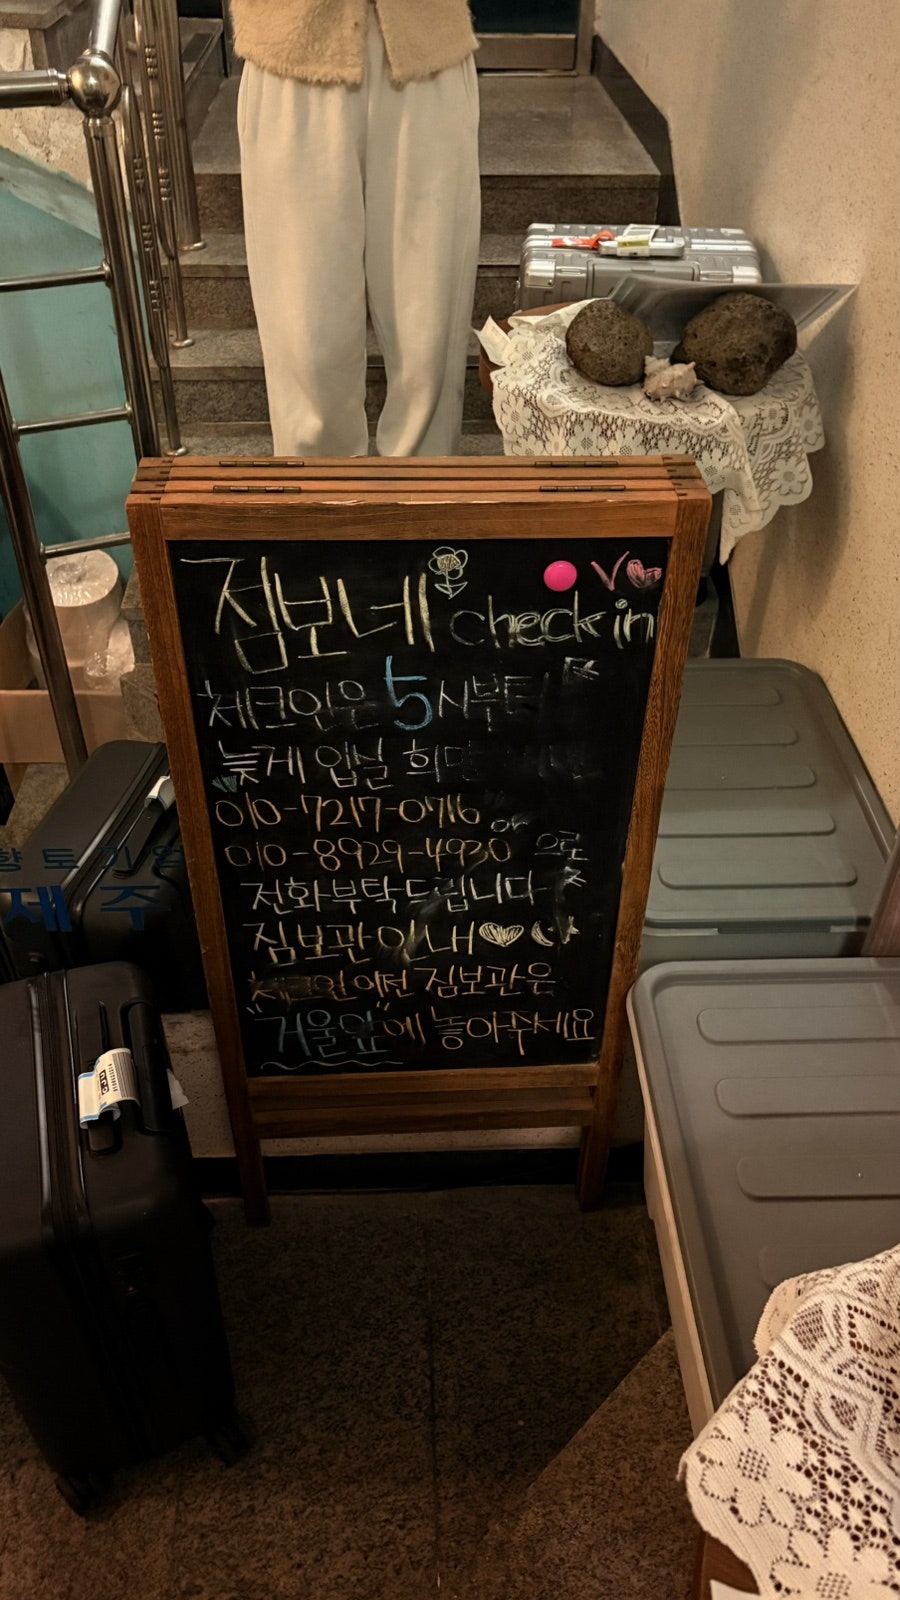 짐보네 check in
체크인은 5시부터
늦게 입실 희망
010-7217-0716 or
010-8929-4930 으로
전화부탁드립니다
짐보관 안내
체크인 이전 짐보관은
"거울앞"에 놓아주세요
향토기업
제주